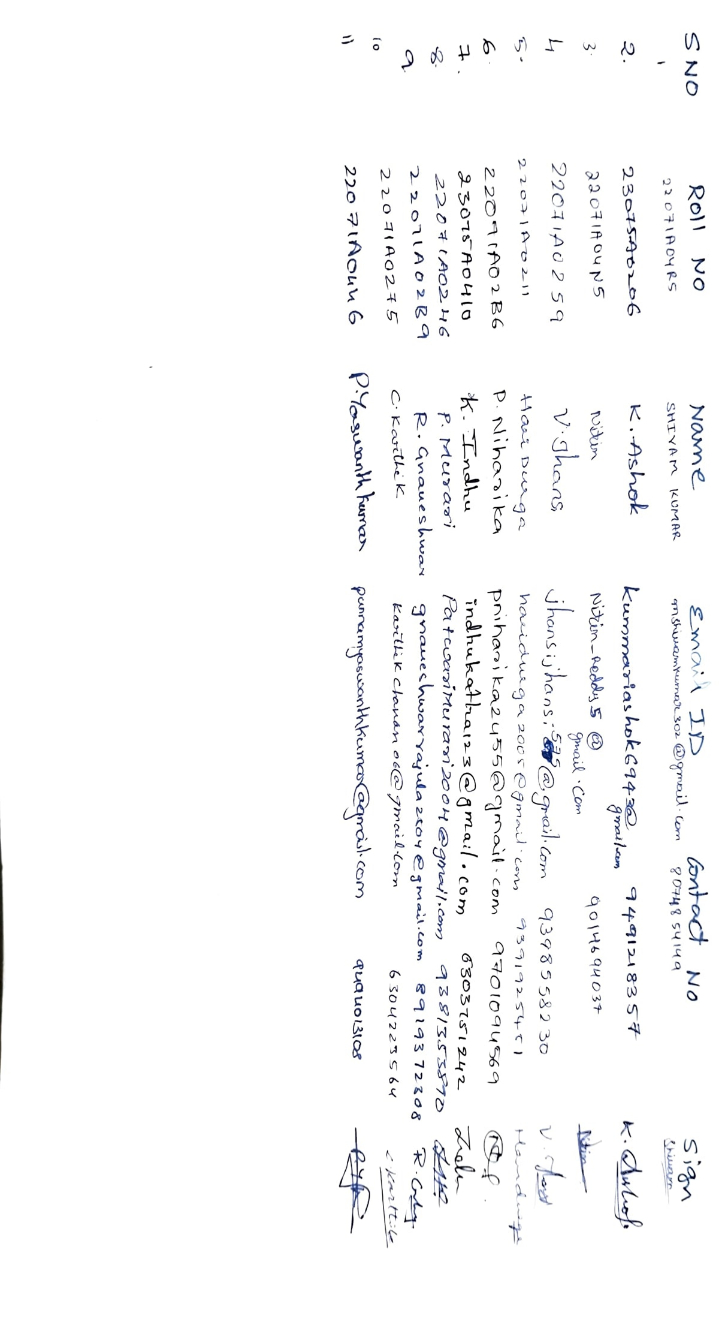 S NO Roll NO Name Email ID Contact No Sign
1 22071A04R5 SHIVAM KUMAR mshivamkumar302@gmail.com 8074854149 Shivam
2. 23075A0206 K. Ashok kummariashok6943@gmail.com 9491218357 K. Ashok
3. 22071A04N5 Nitin Nitin_Reddy5@gmail.com 9014694037 Nitin
4 22071A0259 V. Jhansi jhansijhansi575@gmail.com 9398558230
5. 22071A0211 Hari Durga haridurga2005@gmail.com 9391925451 Haridurga
6. 22071A02B6 P. Niharika pniharika2455@gmail.com 9701094569
7. 23075A0410 K. Indhu indhukatha123@gmail.com 6303751242 Indhu
8. 22071A0246 P. Murari PatwariMurari2004@gmail.com 9381353870
9 22071A02B9 R. Gnaneshwar gnaneshwarrajula2504@gmail.com 8919372308
10 22071A0275 C. Karthik Karthikchanan06@gmail.com 6304223564 C Karthik
11 22071A0446 P. Yaswanth kumar punnamyaswanthkumar@gmail.com 9494013108